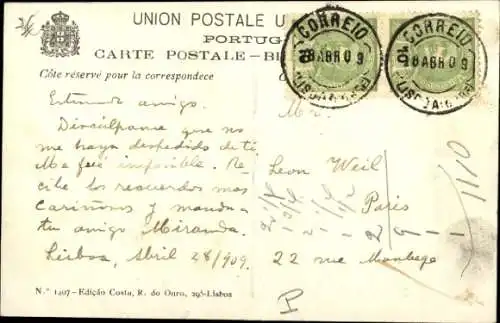 UNION POSTALE U
PORTUGA
CARTE POSTALE – BI
Côte réservé pour la correspondece
CORREIO
28 ABR 0 9
LISBOA
CORREIO
28 ABR 0 9
LISBOA
Estimado amigo.
Discúlpame que no
me haya despedido de ti
Me fué imposible. Re-
cibe los recuerdos mas
cariñosos y manda a
tu amigo Miranda.
Lisboa, Abril 28/909.
Mr.
Leon Weil
Paris
22 rue Maubege
1110
P
N.º 1407 – Edição Costa, R. do Ouro, 295-Lisboa